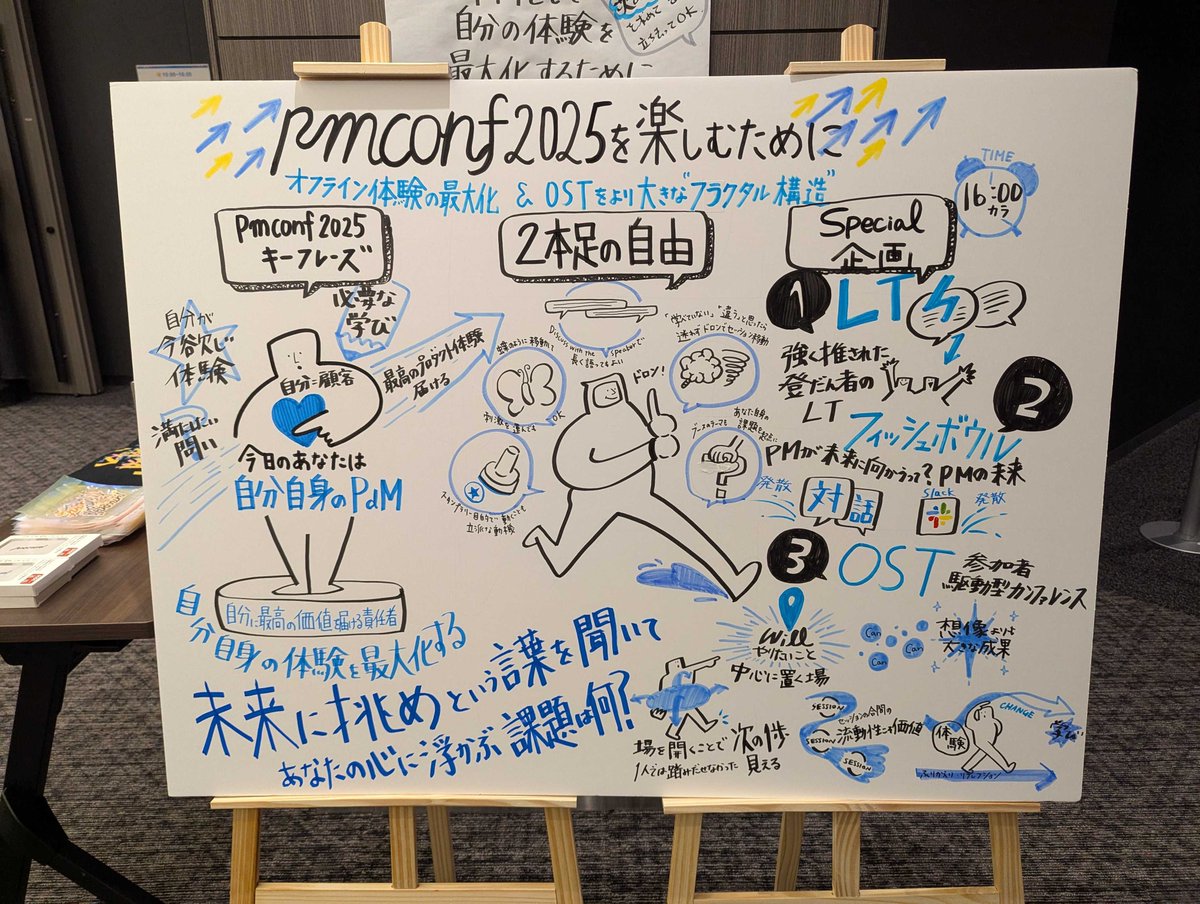 自分の体験を
最大化するために
立ち去ってOK
pmconf2025を楽しむために
オフライン体験の最大化 & OSTをより大きな"フラクタル構造"
TIME
16:00
カラ
pmconf2025
キーフレーズ
必要な
学び
自分が
今欲しい
体験
満たしたい
問い
自分=顧客
最高のプロダクト体験
届ける
今日のあなたは
自分自身のPdM
自分に最高の価値を届ける責任者
自分自身の体験を最大化する
未来に挑めという言葉を聞いて
あなたの心に浮かぶ課題は何?
2本足の自由
Discuss with the speakerで
長く語ってもよい
蝶のように移動して
刺激を運んでも OK
スタンプラリー目的で動くことも
立派な動機
ドロン!
「学べていない」「違う」と思ったら
迷わずドロンでセッション移動
ブースのテーマも
あなた自身の
課題を起点に
Special
企画
1 LT
強く推された
登だん者の
LT
2
フィッシュボウル
PMが未来に向かうって?PMの未来
発散
対話
Slack
発散
3 OST
参加者
駆動型カンファレンス
Will
やりたいこと
中心に置く場
Can
Can
Can
想像よりも
大きな成果
場を開くことで
1人では踏みだせなかった
次の1歩
見える
SESSION
SESSION
SESSION
セッションの合間の
流動性こそ価値
体験
CHANGE
学び
ふりかえり・リフレクション